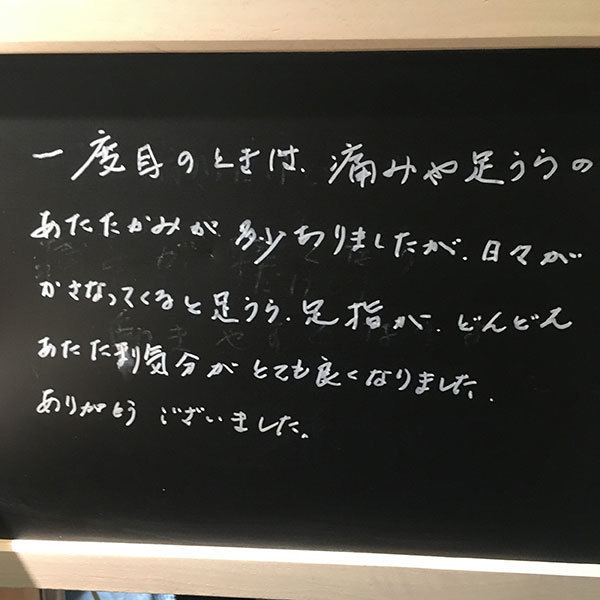 一度目のときは、痛みや足うらの
あたたかみが、多少ありましたが、日々が
かさなってくると足うら、足指が、どんどん
あたた 気分がとても良くなりました、
ありがとうございました。